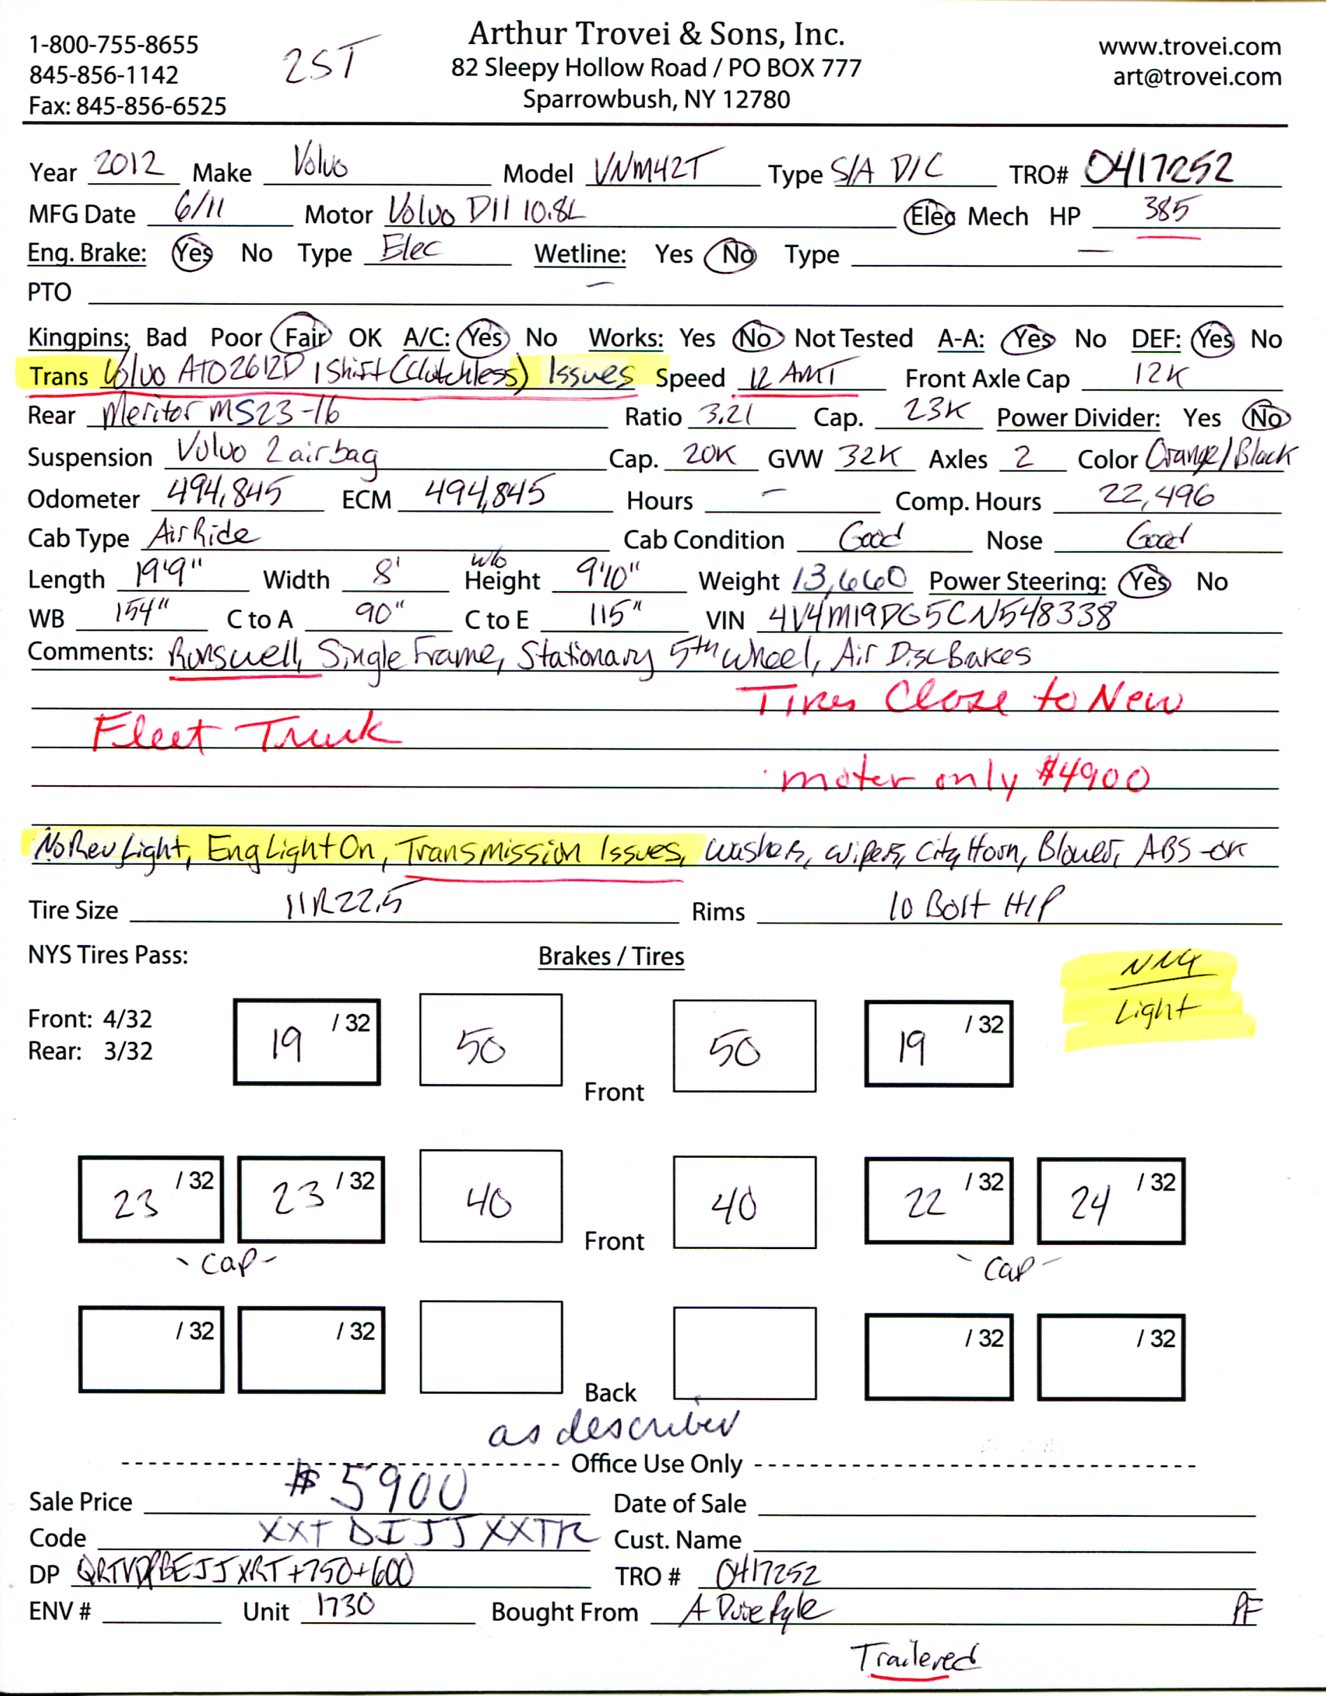 1-800-755-8655
845-856-1142
Fax: 845-856-6525
2ST
Arthur Trovei & Sons, Inc.
82 Sleepy Hollow Road / PO BOX 777
Sparrowbush, NY 12780
www.trovei.com
art@trovei.com
Year 2012 Make Volvo Model VNM42T Type S/A D/C TRO# 0417252
MFG Date 6/11 Motor Volvo D11 10.8L Elec Mech HP 385
Eng. Brake: Yes No Type Elec Wetline: Yes No Type —
PTO —
Kingpins: Bad Poor Fair OK A/C: Yes No Works: Yes No Not Tested A-A: Yes No DEF: Yes No
Trans Volvo ATO2612D 1 Shift (Clutchless) Issues Speed 12 AMT Front Axle Cap 12K
Rear Meritor MS23-16 Ratio 3.21 Cap. 23K Power Divider: Yes No
Suspension Volvo 2 airbag Cap. 20K GVW 32K Axles 2 Color Orange/Black
Odometer 494,845 ECM 494,845 Hours — Comp. Hours 22,496
Cab Type Air Ride Cab Condition Good Nose Good
Length 19'9" Width 8' w/o Height 9'10" Weight 13,660 Power Steering: Yes No
WB 154" C to A 90" C to E 115" VIN 4V4M19DG5CN548338
Comments: Runswell, Single Frame, Stationary 5th Wheel, Air Disc Bakes
Tires Close to New
Fleet Truck
moter only $4900
No Rev Light, Eng Light On, Transmission Issues, Washers, Wipers, City Horn, Blower, ABS - ok
Tire Size 11R22.5 Rims 10 Bolt H/P
NYS Tires Pass: Brakes / Tires
NYS
Light
Front: 4/32
Rear: 3/32
19 /32 50 Front 50 19 /32
23 /32 23 /32 40 Front 40 22 /32 24 /32
- Cap - - Cap -
/32 /32 Back /32 /32
as described
Office Use Only
Sale Price $5900 Date of Sale
Code XXTDIJJXXTR Cust. Name
DP +750+600 TRO # 0417252
ENV # Unit 1730 Bought From A Duie Pyle PF
Trailered